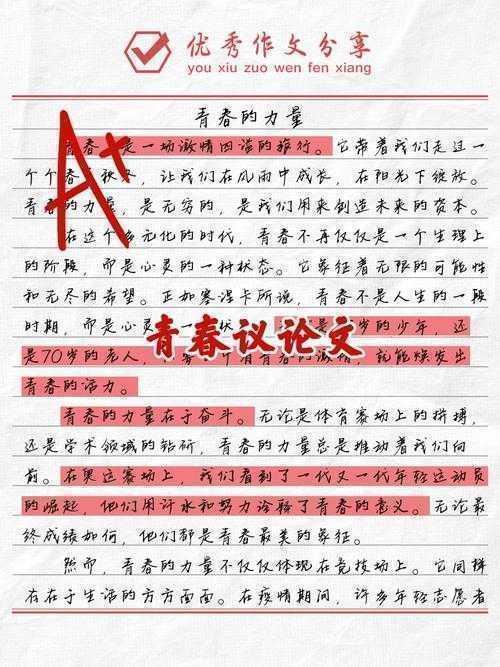 优秀作文分享
you xiu zuo wen fen xiang
A+
青春的力量
青春是一场激情四溢的旅行。它带着我们走过一
个个春秋冬,让我们在风雨中成长,在阳光下绽放。
青春的力量,是无穷的,是我们用来创造未来的资本。
在这个多元化的时代,青春不再仅仅是一个生理上
的阶段,而是心灵的一种状态。它象征着无限的可能性
和无尽的希望。正如塞涅卡所说,青春不是人生的一段
时期,而是心灵的一状岁的少年,还
青春议论文
是70岁的老人,有青春的激情,就能焕发出
青春的活力。
青春的力量在于奋斗。无论是体育赛场上的拼搏,
还是学术领域的钻研,青春的力量总是推动着我们向
前。在奥运赛场上,我们看到了一代又一代年轻运动员
的崛起,他们用汗水和努力诠释了青春的意义。无论最
终成绩如何,他们都是青春最美的象征。
然而,青春的力量不仅仅体现在竞技场上。它同样
存在于生活的方方面面。在疫情期间,许多年轻志愿者